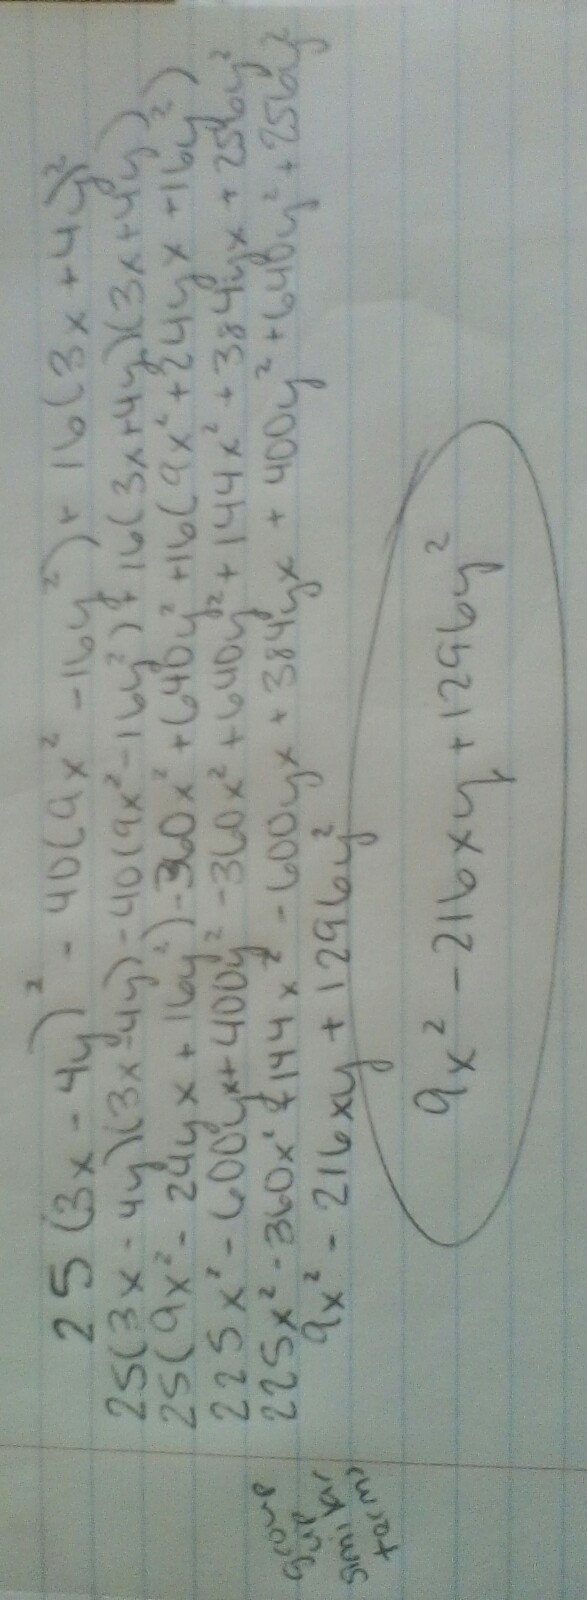 25(3x - 4y)² - 40(9x² - 16y²) + 16(3x + 4y)²
25(3x - 4y)(3x - 4y) - 40(9x² - 16y²) + 16(3x + 4y)(3x + 4y)
25(9x² - 24yx + 16y²) - 360x² + 640y² + 16(9x² + 24yx + 16y²)
225x² - 600yx + 400y² - 360x² + 640y² + 144x² + 384yx + 256y²
225x² - 360x² + 144x² - 600yx + 384yx + 400y² + 640y² + 256y²
9x² - 216xy + 1296y²
9x² - 216xy + 1296y²
group
up
similar
term